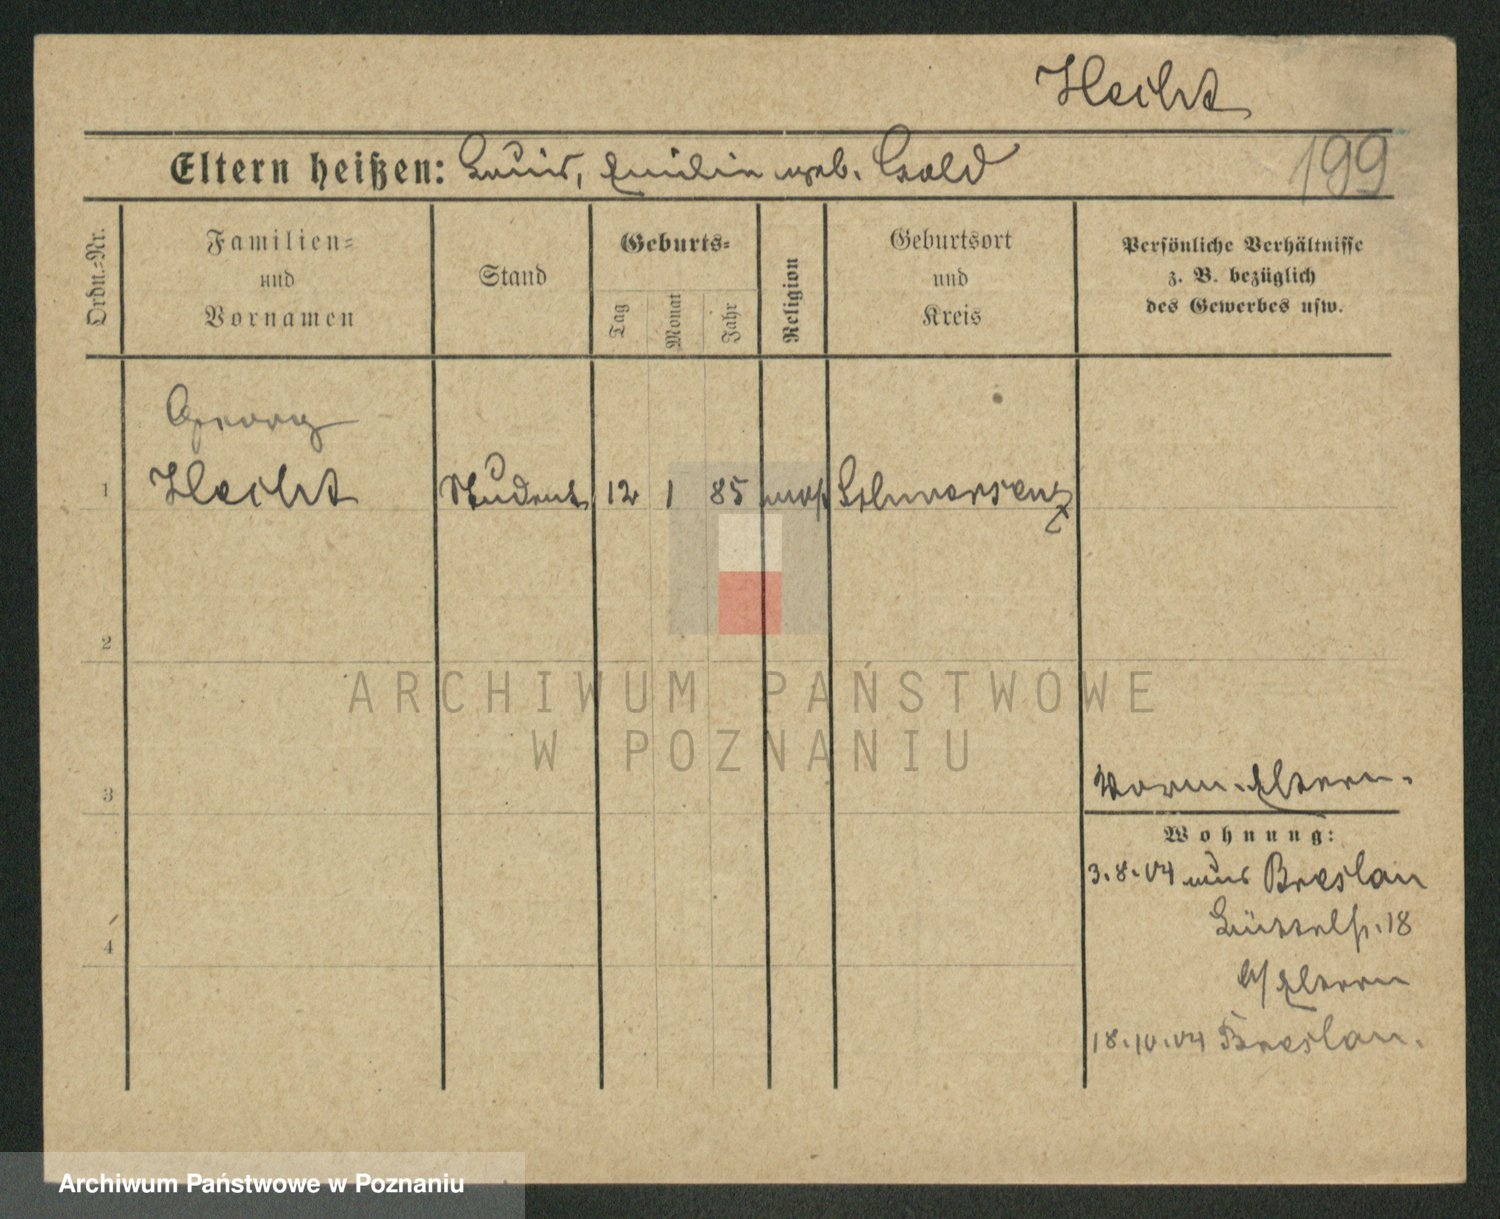 Hecht
Eltern heißen: Louis, Emilie geb. Cohn
199
Ordn.-Nr.
Familien-
und
Vornamen
Stand
Geburts-
Tag
Monat
Jahr
Religion
Geburtsort
und
Kreis
Persönliche Verhältnisse
z. B. bezüglich
des Gewerbes usw.
Georg
1 Hecht Student 12 1 85 mos Schwersenz
2
ARCHIWUM PAŃSTWOWE
W POZNANIU
3
Vorm. Eltern.
Wohnung:
3.8.04 aus Breslau
18
4
b/ Eltern
18.10.04 Breslau.
Archiwum Państwowe w Poznaniu